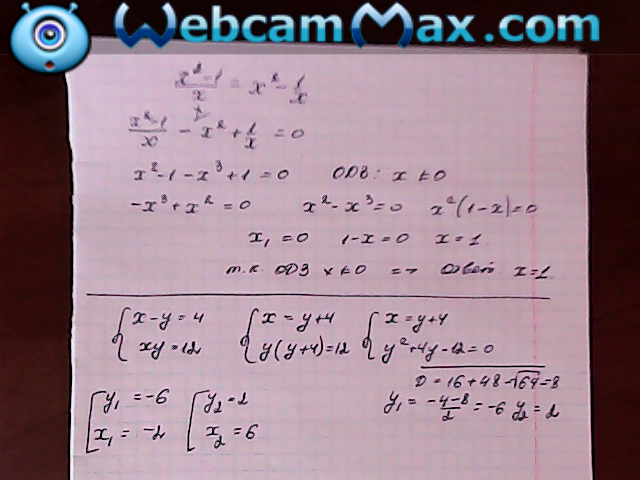 WebcamMax.com
x²-1/x = x² - 1/x
x²-1/x - x² + 1/x = 0
x²-1-x³+1=0 ОДЗ: x ≠ 0
-x³+x²=0 x²-x³=0 x²(1-x)=0
x₁=0 1-x=0 x=1
т.к. ОДЗ x≠0 => Ответ x=1
{ x-y=4 { x=y+4 { x=y+4
xy=12 y(y+4)=12 y²+4y-12=0
D=16+48=√64=8
[ y₁=-6 [ y₂=2 y₁=-4-8/2=-6 y₂=2
x₁=-2 x₂=6